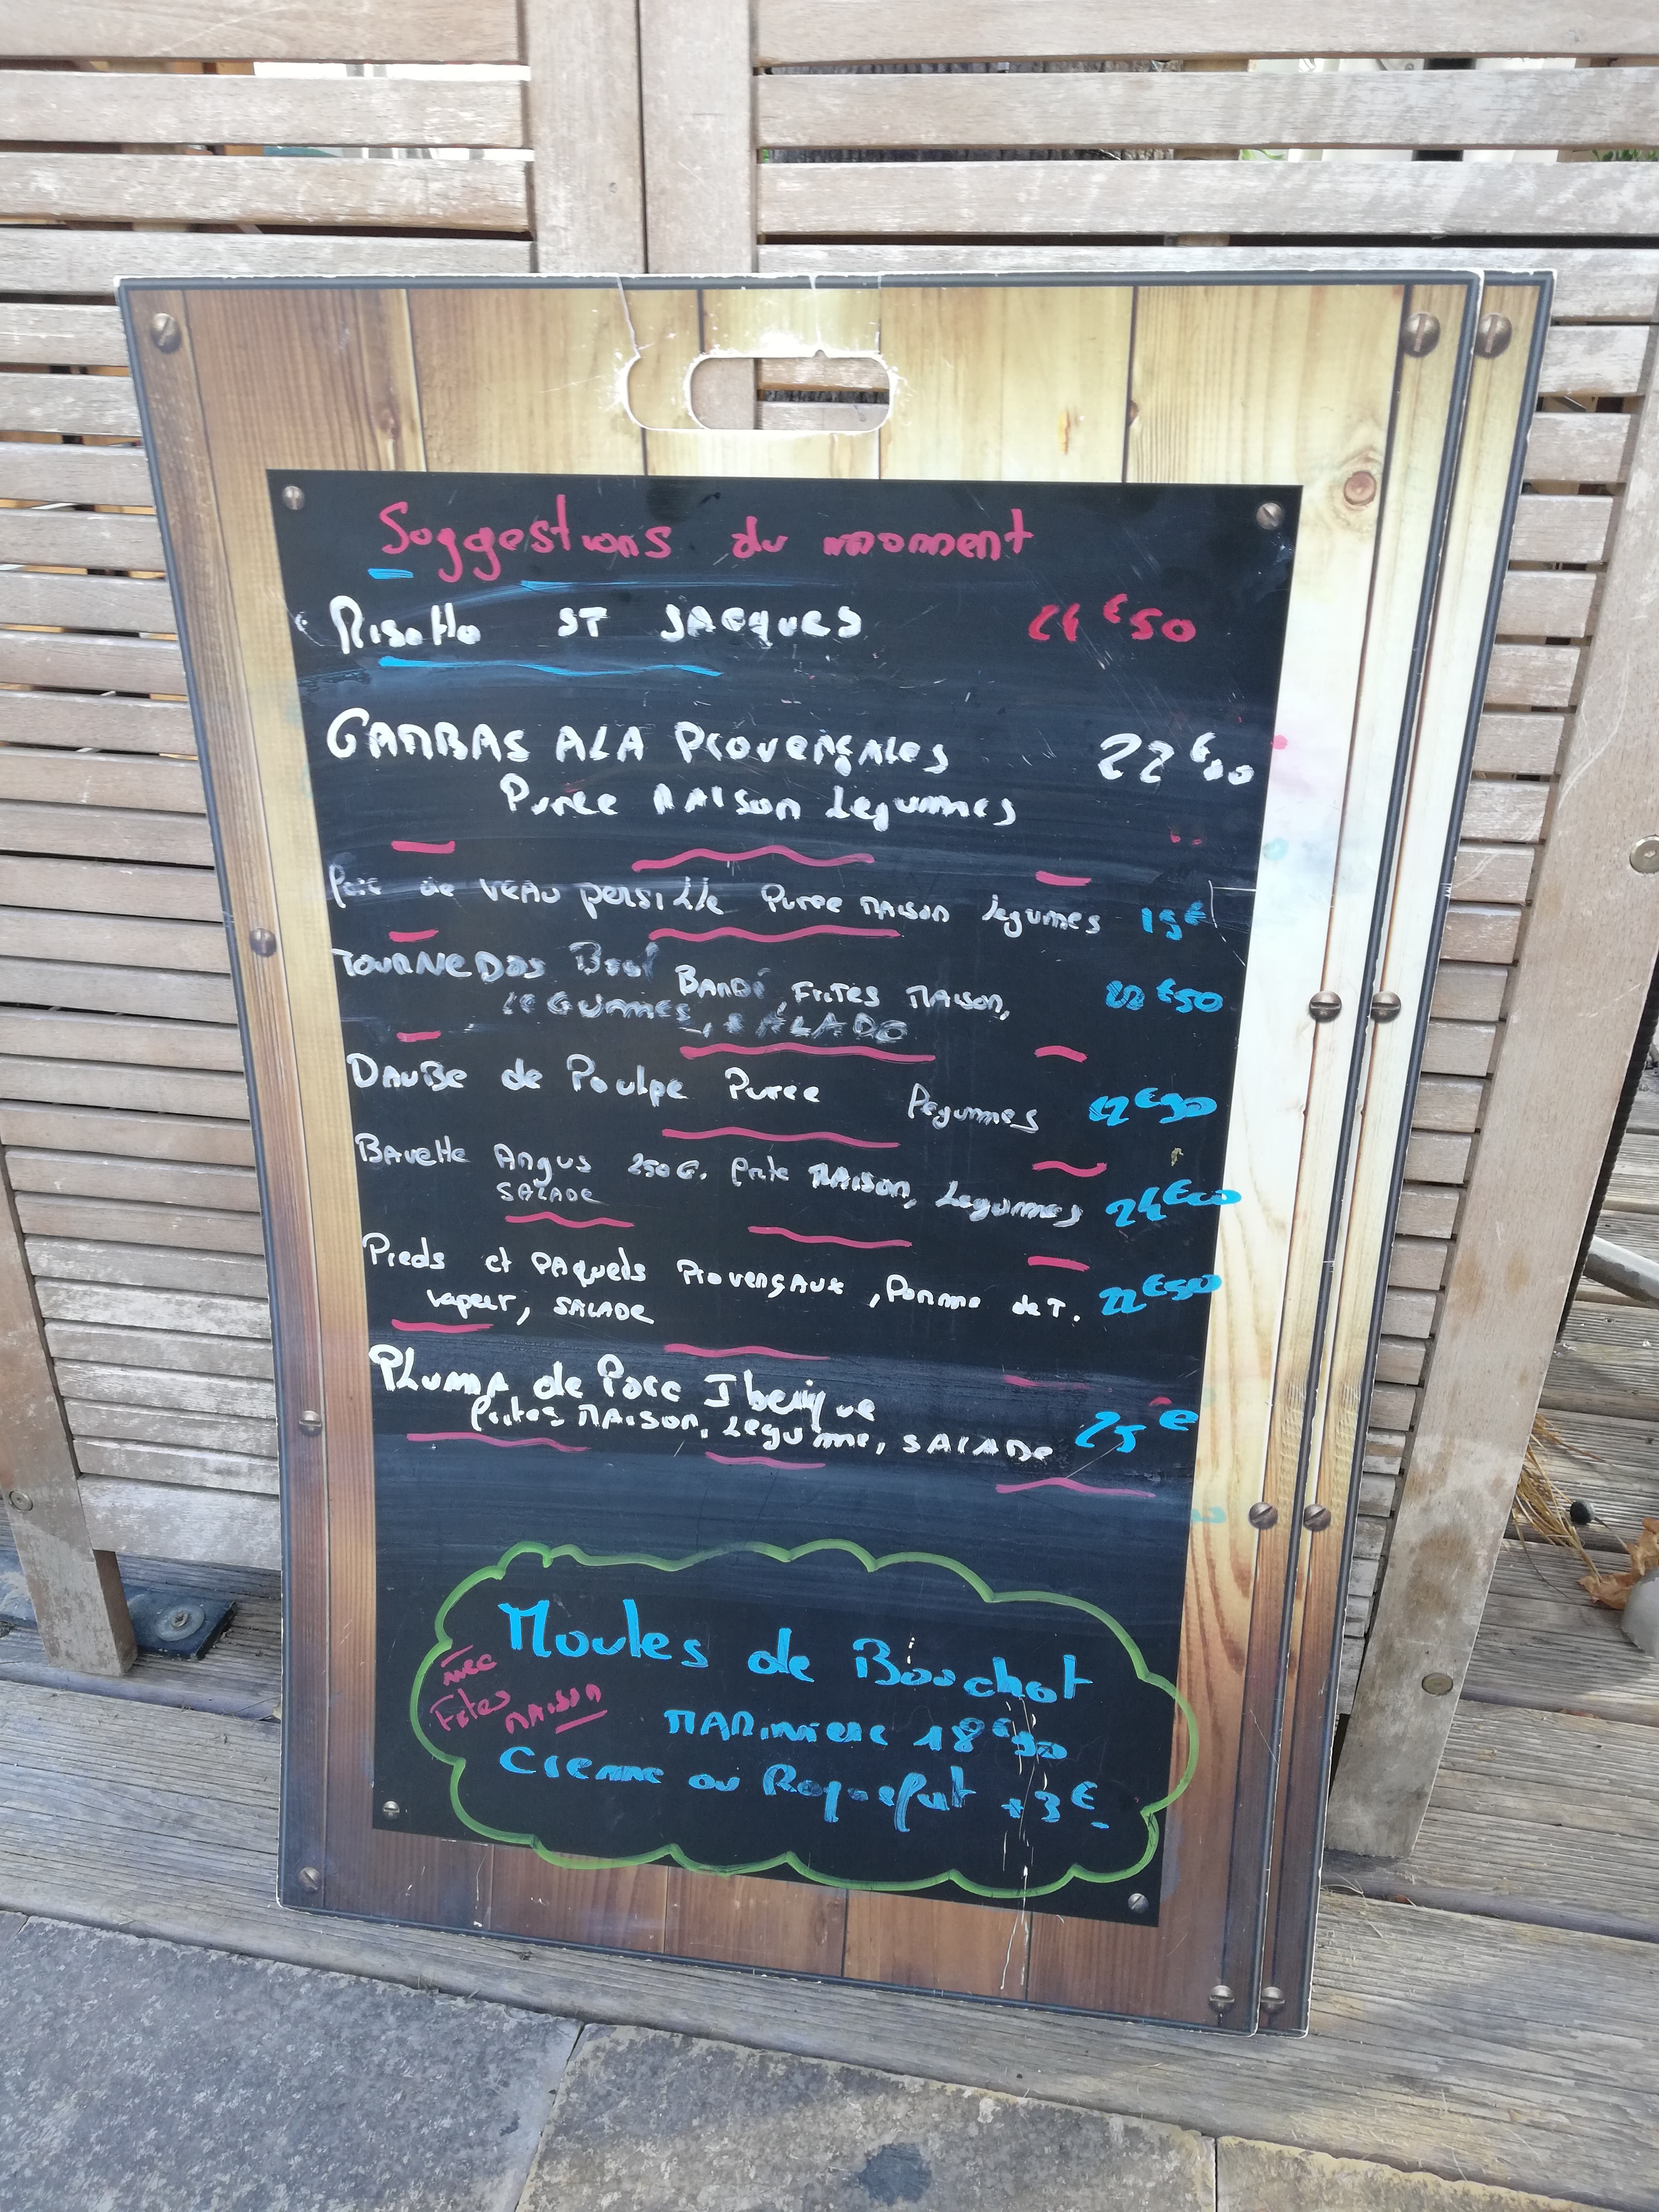 Suggestions du moment
Risotto ST JACQUES 24€50
GAMBAS ALA PROVENÇALES 22€90
Purée MAISON Legumes
de VEAU persillé Purée MAISON legumes 19€
TOURNEDOS BARDÉ, FRITES MAISON, €50
LEGUMES, SALADE
DAUBE de Poulpe Purée légumes €90
Bavette Angus 250G. frite MAISON, Legumes 24€00
SALADE
Pieds et PAquets PROVENÇAUX, Pomme de T. 22€50
vapeur, SALADE
PLUMA de Porc Iberique
frites MAISON, Legume, SALADE 25€
Moules de Bouchot
avec
Frites MAISON
MARINIERE 18€90
Creme ou Roquefort +3€